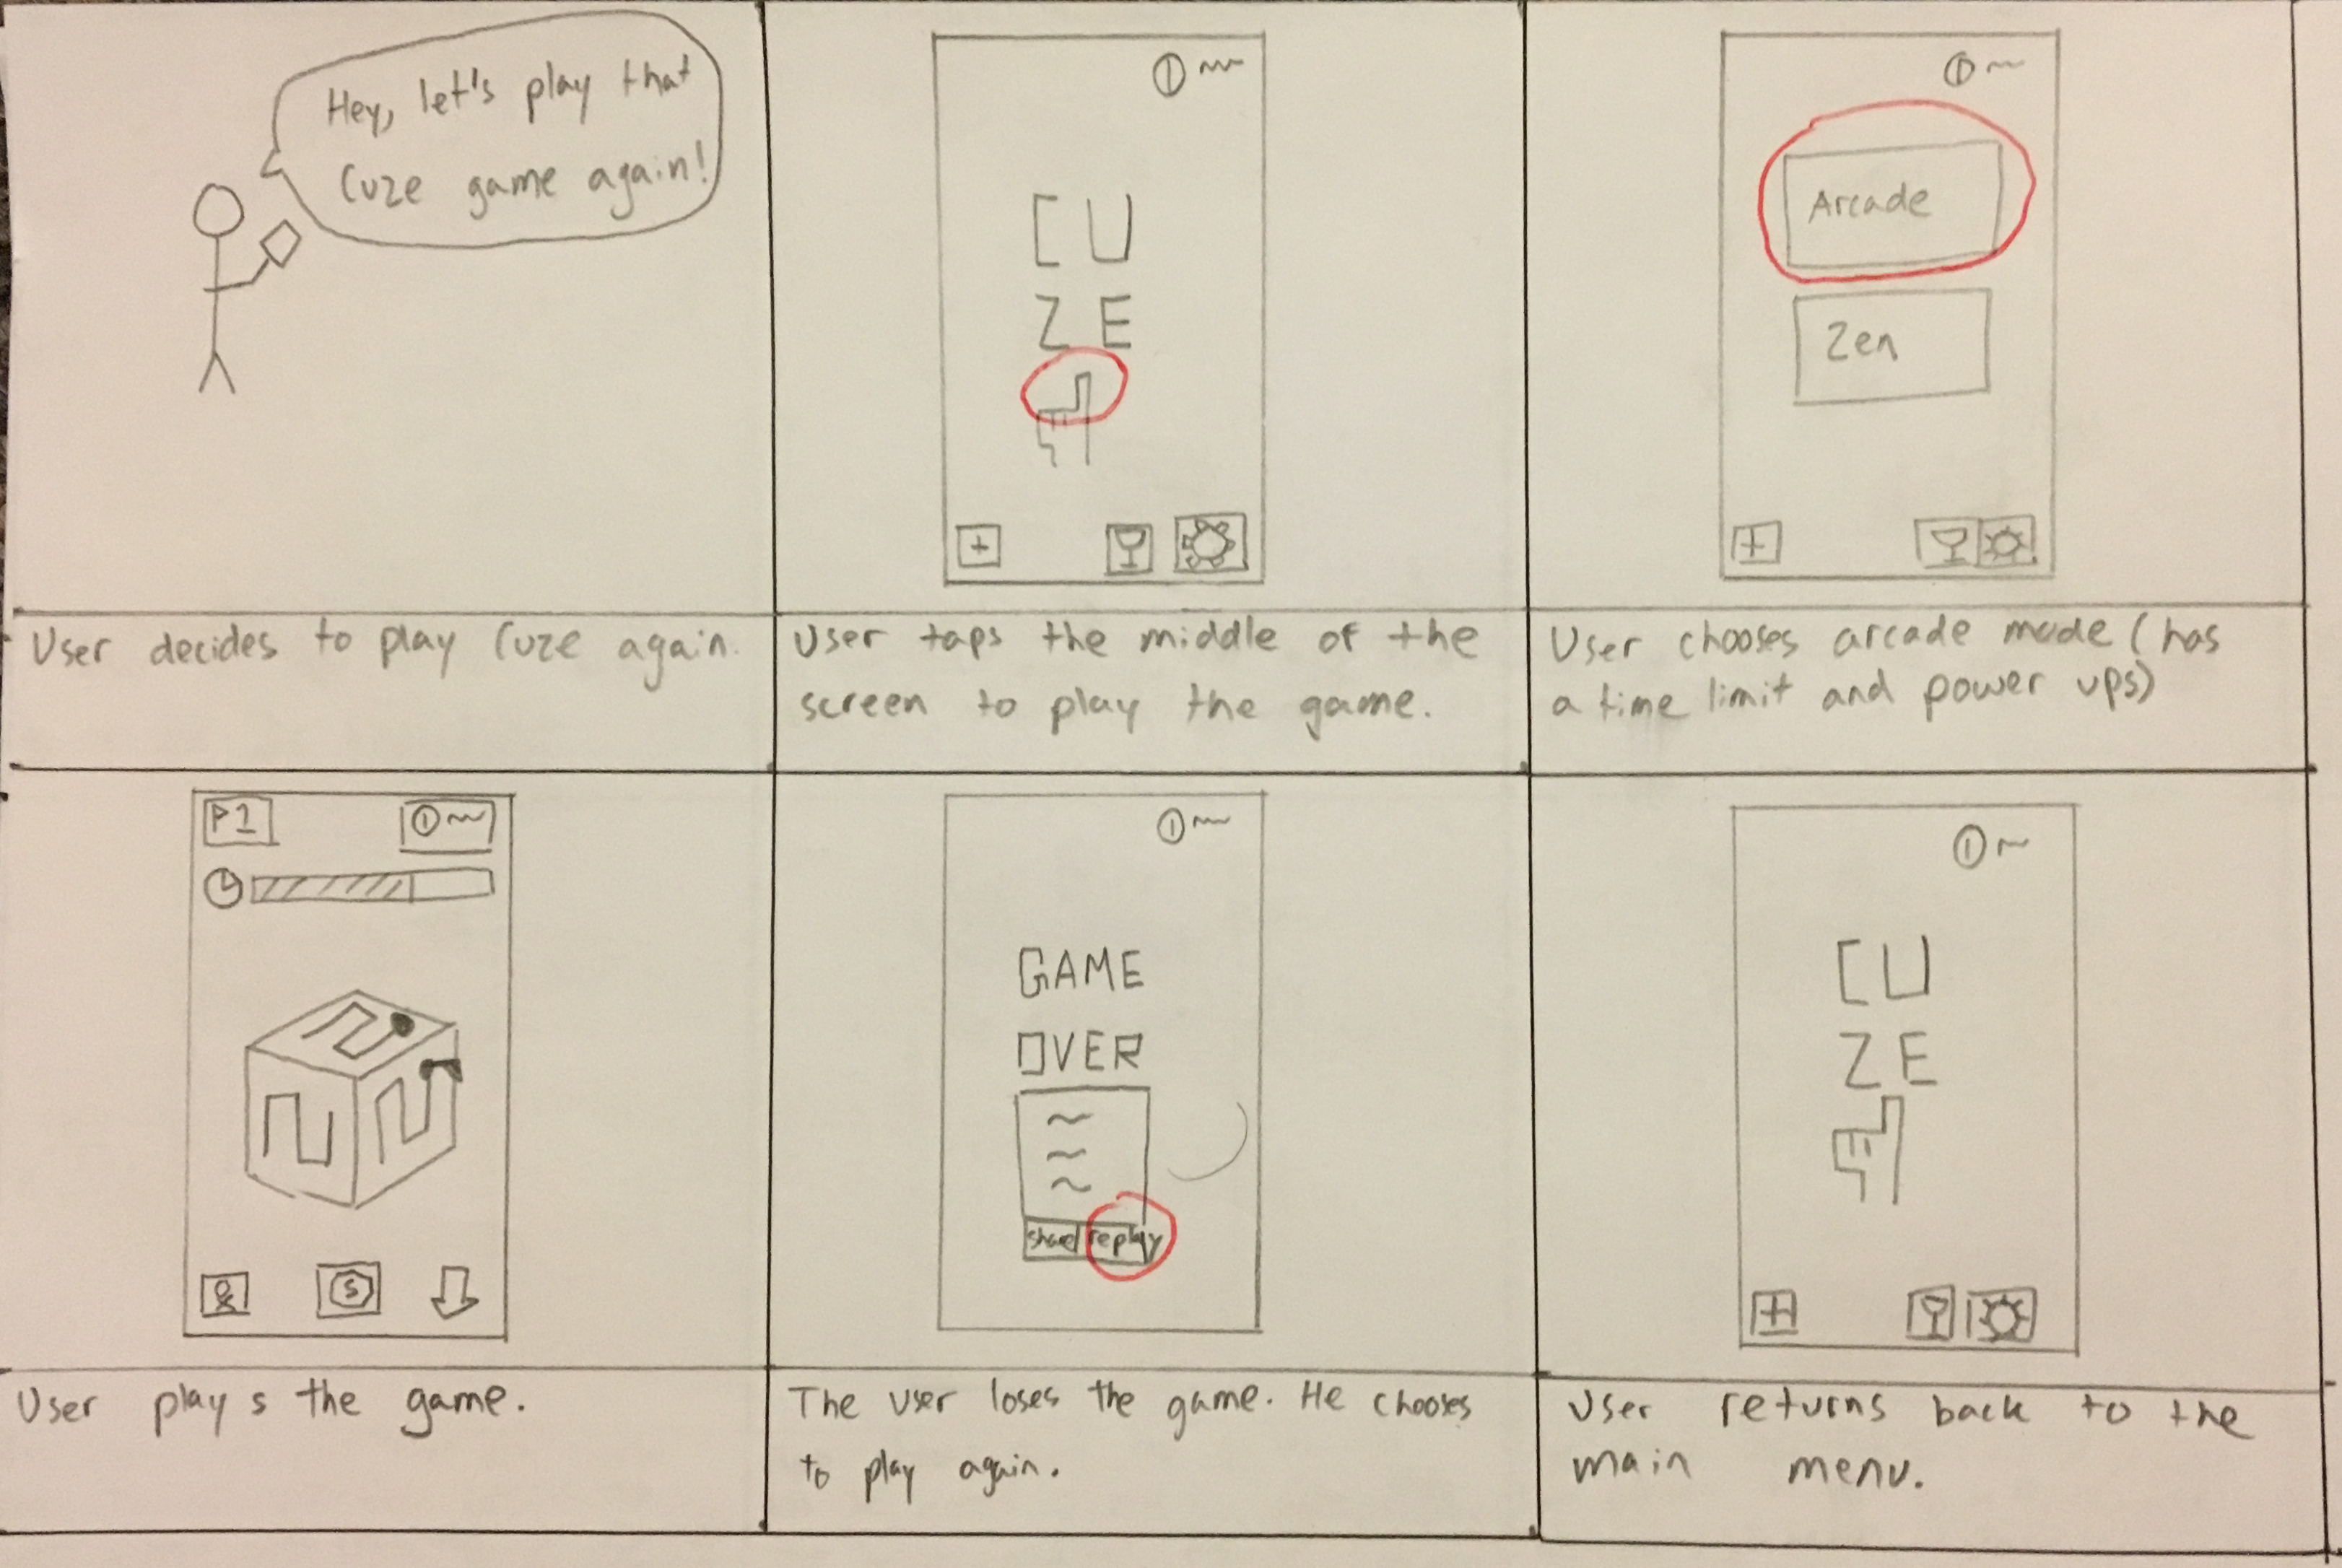 Hey, let's play that
Cuze game again!
User decides to play Cuze again.
CU
ZE
+
User taps the middle of the
screen to play the game.
Arcade
Zen
+
User chooses arcade mode (has
a time limit and power ups)
P1
S
User plays the game.
GAME
OVER
share replay
The user loses the game. He chooses
to play again.
CU
ZE
+
User returns back to the
main menu.